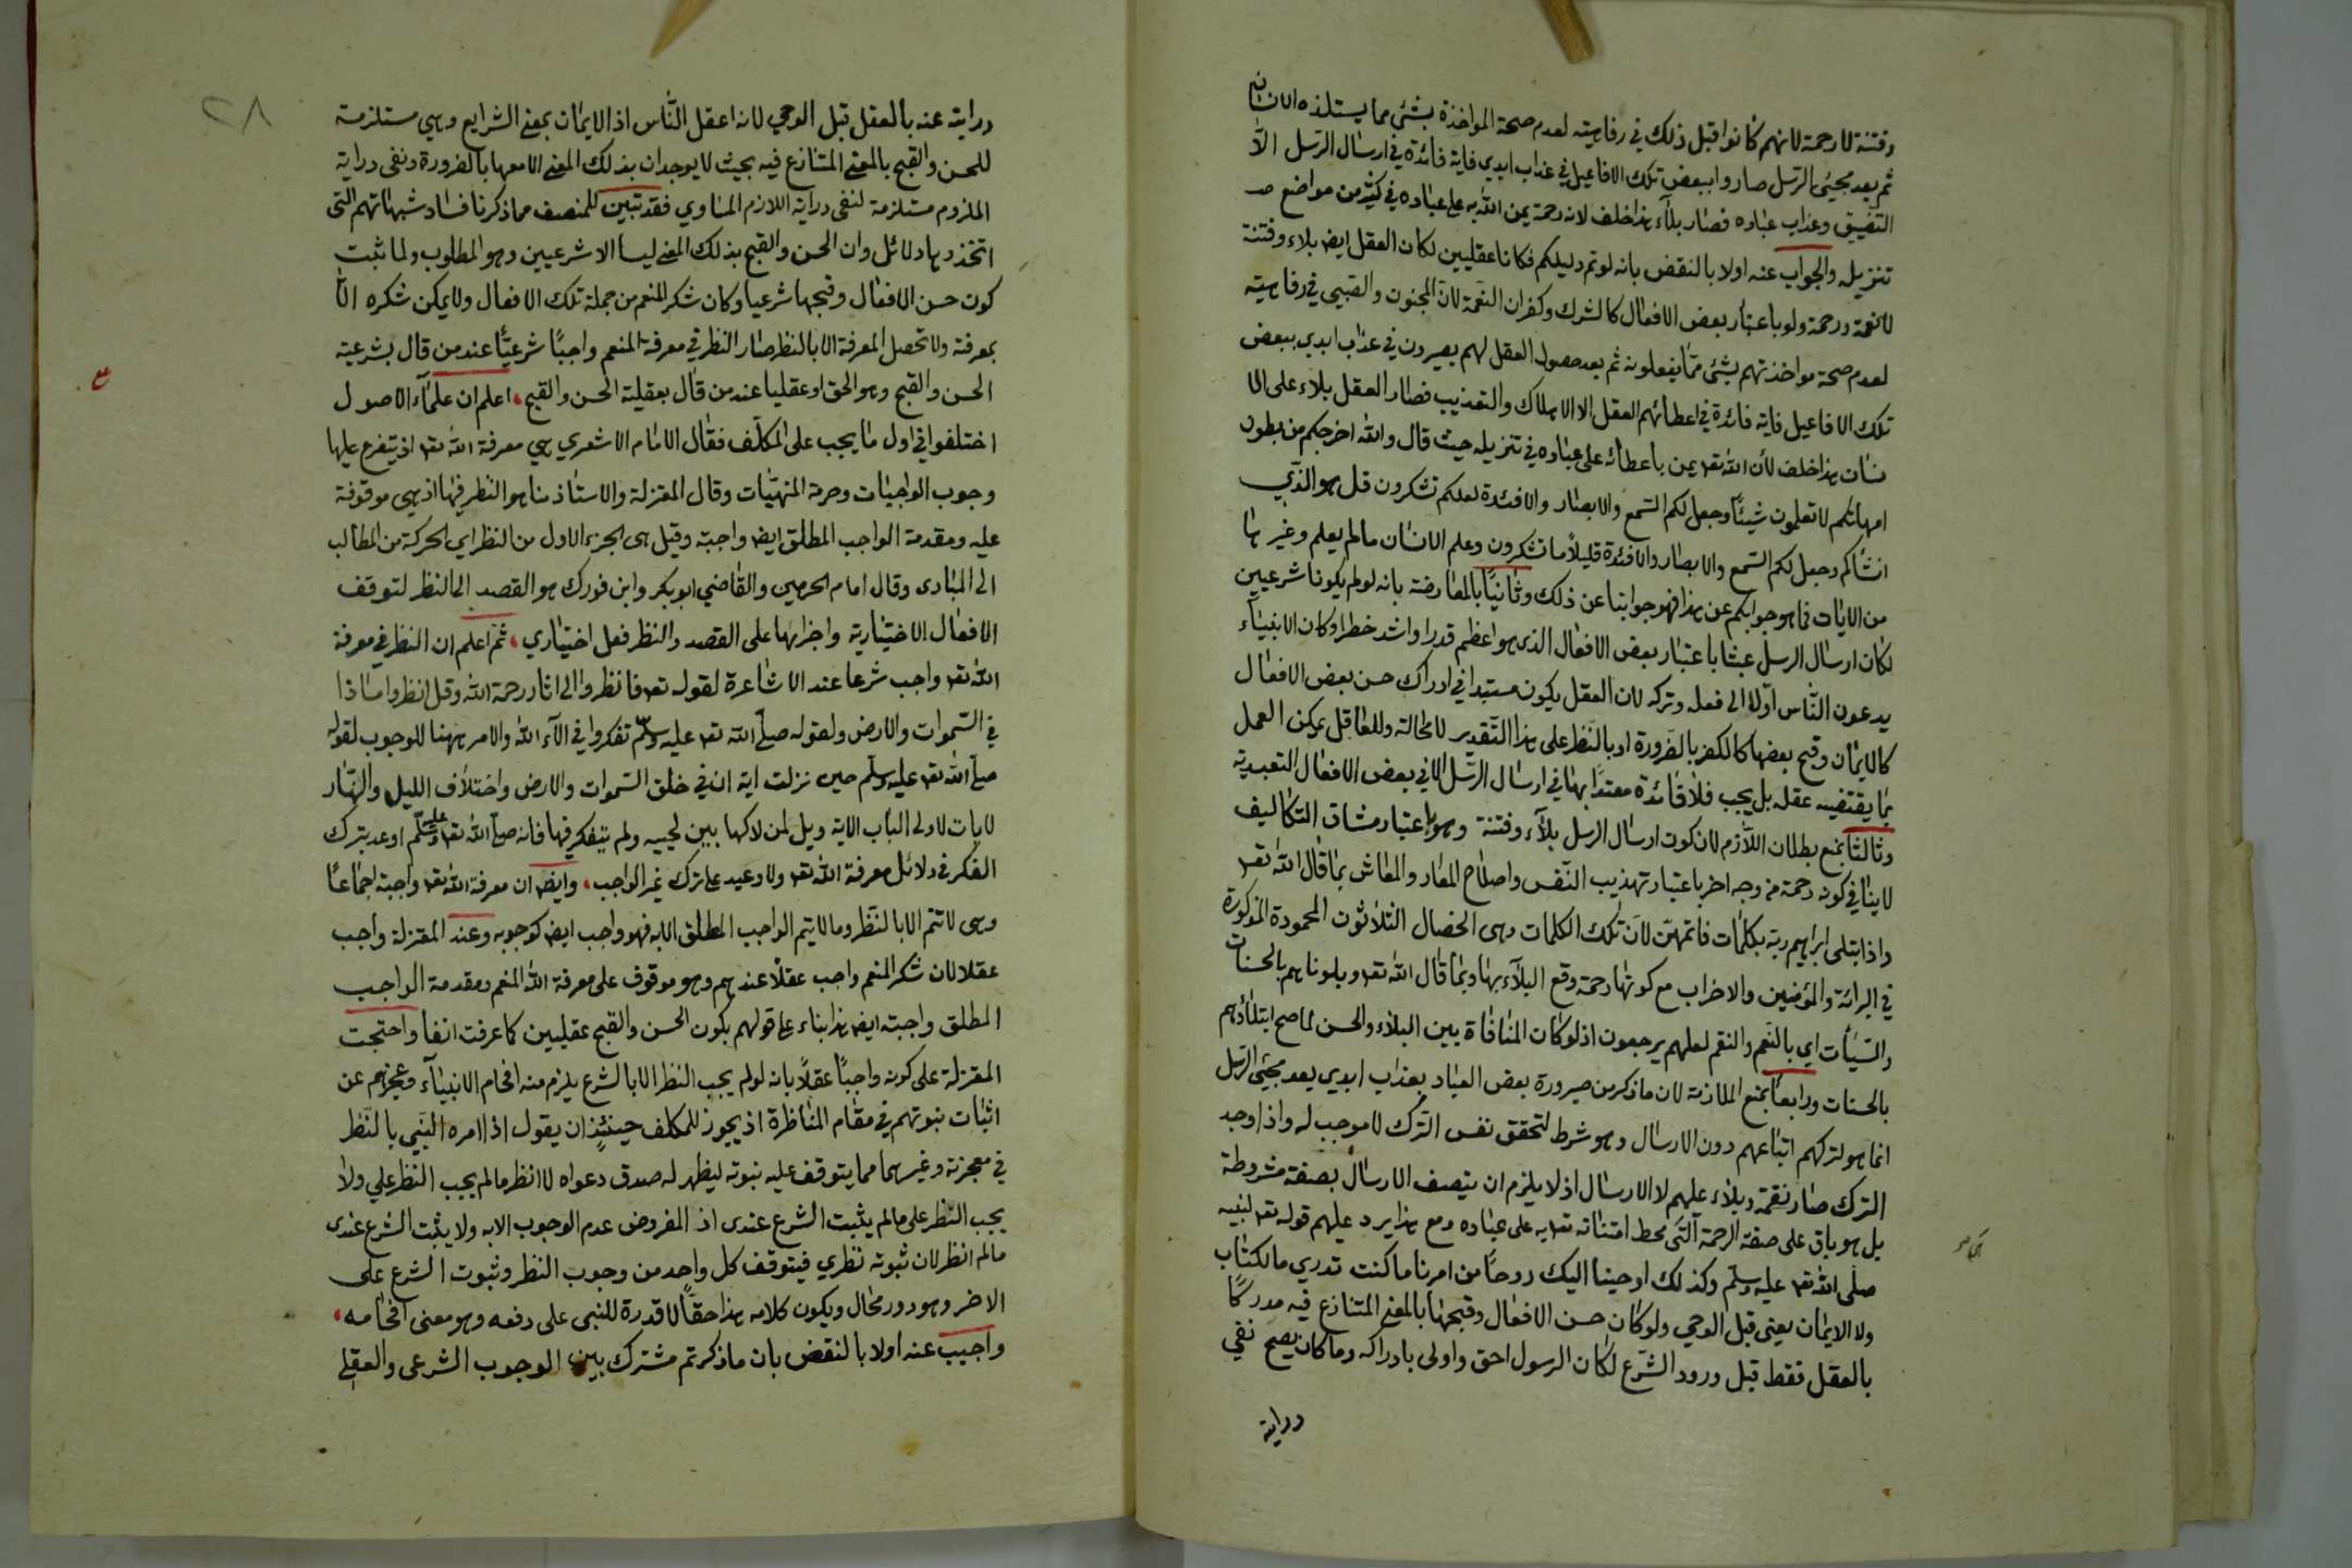 وفتنة لا رحمة لانهم كانوا قبل ذلك في رفاهية لعدم صحة المواخذة بشئ مما يستلذه الانسان
ثم بعد مجيئ الرسل صاروا ببعض تلك الافاعيل في عذاب ابدي فاية فائدة في ارسال الرسل الّا
التضييق وعذاب عباده فصار بلآء هذا خلف لانه رحمة يمن الله به على عباده في كثير من مواضع
تنزيله والجواب عنه اولا بالنقض بانه لو تم دليلكم فكانا عقليين لكان العقل ايضا بلاء وفتنة
لا نعمة ورحمة ولو باعتبار بعض الافعال كالشرك وكفران النعمة لان المجنون والصبي في رفاهية
لعدم صحة مواخذتهم بشئ ممّا يفعلونه ثم بعد حصول العقل لهم يصيرون في عذاب ابدي ببعض
تلك الافاعيل فاية فائدة في اعطائهم العقل الا الاهلاك والتعذيب فصار العقل بلاء على الا
نسان هذا خلف لأن الله تعه يمن باعطائه على عباده في تنزيله حيث قال والله اخرجكم من بطون
امهاتكم لا تعلمون شيئًا وجعل لكم السّمع والابصار والافئدة لعلكم تشكرون قل هو الذي
انشأكم وجعل لكم السّمع والابصار والافئدة قليلًا ما تشكرون وعلم الانسان مالم يعلم وغيرها
من الايات فما هو جوابكم عن هذا فهو جوابنا عن ذلك وثانيًا بالمعارضة بانه لو لم يكونا شرعيين
لكان ارسال الرسل عبثا باعتبار بعض الافعال الذى هو اعظم قدرا واشد خطرا وكان الانبيآء
يدعون النّاس اوّلا الى فعله وتركه لان العقل يكون مستبدا في ادراك حسن بعض الافعال
كالايمان وقبح بعضها كالكفر بالضرورة او بالنظر على هذا التقدير لا محالة وللعاقل يمكن العمل
بما يقتضيه عقله بل يجب فلا فائدة معتدًا بها في ارسال الرّسل الا في بعض الافعال التعبدية
وثالثا بمنع بطلان اللّازم لان كون ارسال الرسل بلآء وفتنة وهو باعتبار مشاق التكاليف
لا ينافي كونه رحمة من وجه اخر باعتبار تهذيب النّفس واصلاح المعاد والمعاش بما قال الله تعه
واذ ابتلى ابراهيم ربّه بكلمات فاتمهنّ لانّ تلك الكلمات وهى الخصال الثلاثون المحمودة المذكورة
في البرائة والمؤمنين والاحزاب مع كونها رحمة وقع البلآء بها وبما قال الله تعه وبلوناهم بالحسنات
والسّيّأت اي بالنّعم والنقم لعلهم يرجعون اذ لو كان المنافاة بين البلاء والحسن لما صح ابتلاؤهم
بالحسنات ورابعا بمنع الملازمة لان ماذكر من صيرورة بعض العباد بعذاب ابدي بعد مجيئ الرّسل
انما هو لتركهم اتباعهم دون الارسال وهو شرط لتحقق نفس التّرك لا موجب له واذا وجد
الترك صار نقمة وبلاء عليهم لا الارسال اذ لا يلزم ان يتصف الارسال بصفة مشروطة
بل هو باق على صفة الرحمة الّتى محط امتنانه تعه به على عباده ومع هذا يرد عليهم قوله تعه لنبيه
صلى الله تعه عليه وسلّم وكذلك اوحينا اليك روحًا من امرنا ما كنت تدري ما لكتاب
ولا الايمان يعنى قبل الوحي ولو كان حسن الافعال وقبحها بالمعنى المتنازع فيه مدركًا
بالعقل فقط قبل ورود الشّرع لكان الرسول احق واولى بادراكه وما كان يصح نفي
دراية
٢٨
درايته عنه بالعقل قبل الوحي لانه اعقل النّاس اذ الايمان بمعنى الشرايع وهي مستلزمة
للحسن والقبح بالمعنى المتنازع فيه بحيث لا يوجدان بذلك المعنى الا معها بالضرورة ونفى دراية
الملزوم مستلزمة لنفى دراية اللازم المساوي فقد تبين للمنصف مما ذكرنا فساد شبهاتهم التى
اتخذوها دلائل وان الحسن والقبح بذلك المعنى ليسا الا شرعيين وهو المطلوب ولما ثبت
كون حسن الافعال وقبحها شرعيا وكان شكر المنعم من جملة تلك الافعال ولا يمكن شكره الّا
بمعرفته ولا تحصل المعرفة الا بالنظر صار النظر في معرفة المنعم واجبًا شرعيًا عند من قال بشرعية
الحسن والقبح وهو الحق او عقليا عند من قال بعقلية الحسن والقبح، اعلم ان علمآء الاصول
اختلفوا في اول ما يجب على المكلّف فقال الامام الاشعري هي معرفة الله تعه اذ يتفرع عليها
وجوب الواجبات وحرمة المنهيّات وقال المعتزلة والاستاذ منا هو النظر فيها اذ هي موقوفة
عليه ومقدمة الواجب المطلق ايضا واجبة وقيل هى الجزء الاول من النظر اي الحركة من المطالب
الى المبادى وقال امام الحرمين والقاضي ابو بكر وابن فورك هو القصد الى النظر لتوقف
الافعال الاختيارية واجزائها على القصد والنظر فعل اختياري، ثم اعلم ان النظر في معرفة
الله تعه واجب شرعا عند الاشاعرة لقوله تعه فانظروا الى اثار رحمة الله وقل انظروا ماذا
في السّموات والارض ولقوله صلّى الله تعه عليه وسلّم تفكروا في الآء الله والامر ههنا للوجوب لقوله
صلّى الله تعه عليه وسلّم حين نزلت اية ان في خلق السّموات والارض واختلاف الليل والنّهار
لايات لاولى الباب الاية ويل لمن لاكها بين لحييه ولم يتفكر فيها فانه صلّى الله تعه عليه وسلّم اوعد بترك
الفكر في دلائل معرفة الله تعه ولا وعيد على ترك غير الواجب، وايضا ان معرفة الله تعه واجبة اجماعًا
وهى لا تتم الا بالنّظر وما لا يتم الواجب المطلق الا به فهو واجب ايضا كوجوبه وعند المعتزلة واجب
عقلا لان شكر المنعم واجب عقلًا عندهم وهو موقوف على معرفة الله المنعم ومقدمة الواجب
المطلق واجبة ايضا هذا بناء على قولهم بكون الحسن والقبح عقليين كما عرفت انفا واحتجت
المعتزلة على كونه واجبًا عقلًا بانه لو لم يجب النظر الا بالشرع يلزم منه افحام الانبيآء وعجزهم عن
اثبات نبوتهم في مقام المناظرة اذ يجوز للمكلف حينئذٍ ان يقول اذا امره النّبي بالنّظر
في معجزته وغيرهما مما يتوقف عليه نبوته ليظهر له صدق دعواه لا انظر مالم يجب النظر علي ولا
يجب النّظر على مالم يثبت الشرع عندى اذ المفروض عدم الوجوب الا به ولا يثبت الشرع عندى
مالم انظر لان ثبوته نظري فيتوقف كل واحد من وجوب النظر وثبوت الشرع على
الاخر وهو دور محال ويكون كلامه هذا حقًا لا قدرة للنبى على دفعه وهو معنى افحامه،
واجيب عنه اولا بالنقض بان ماذكرتم مشترك بين الوجوب الشرعى والعقلى